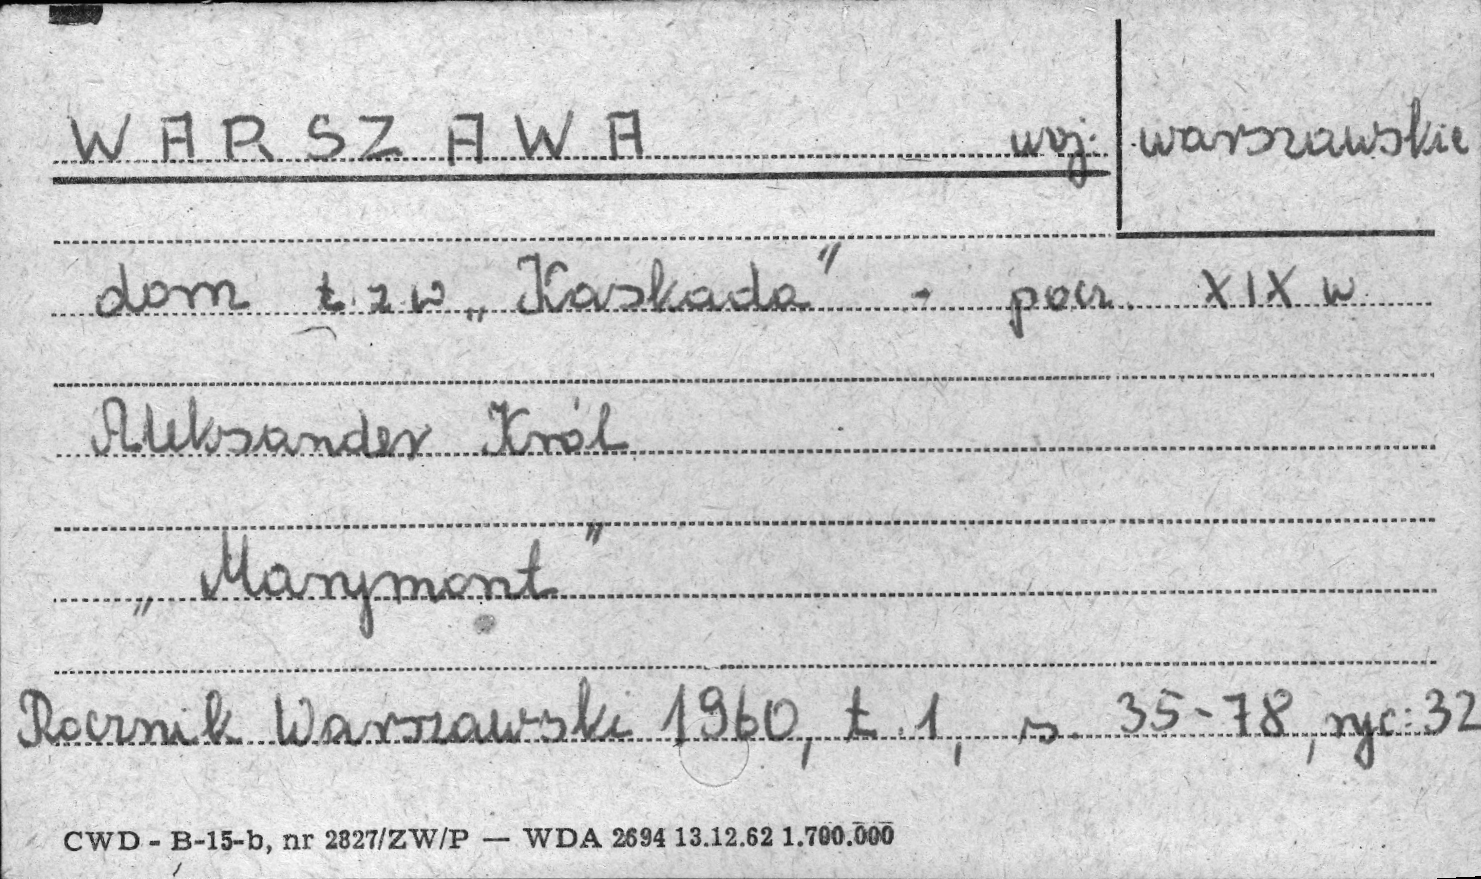 WARSZAWA woj: warszawskie
dom t.zw „Kaskada" - pocz. XIX w.
Aleksander Król
„Marymont"
Rocznik Warszawski 1960, t.1, s. 35-78, ryc: 32
CWD - B-15-b, nr 2827/ZW/P — WDA 2694 13.12.62 1.700.000